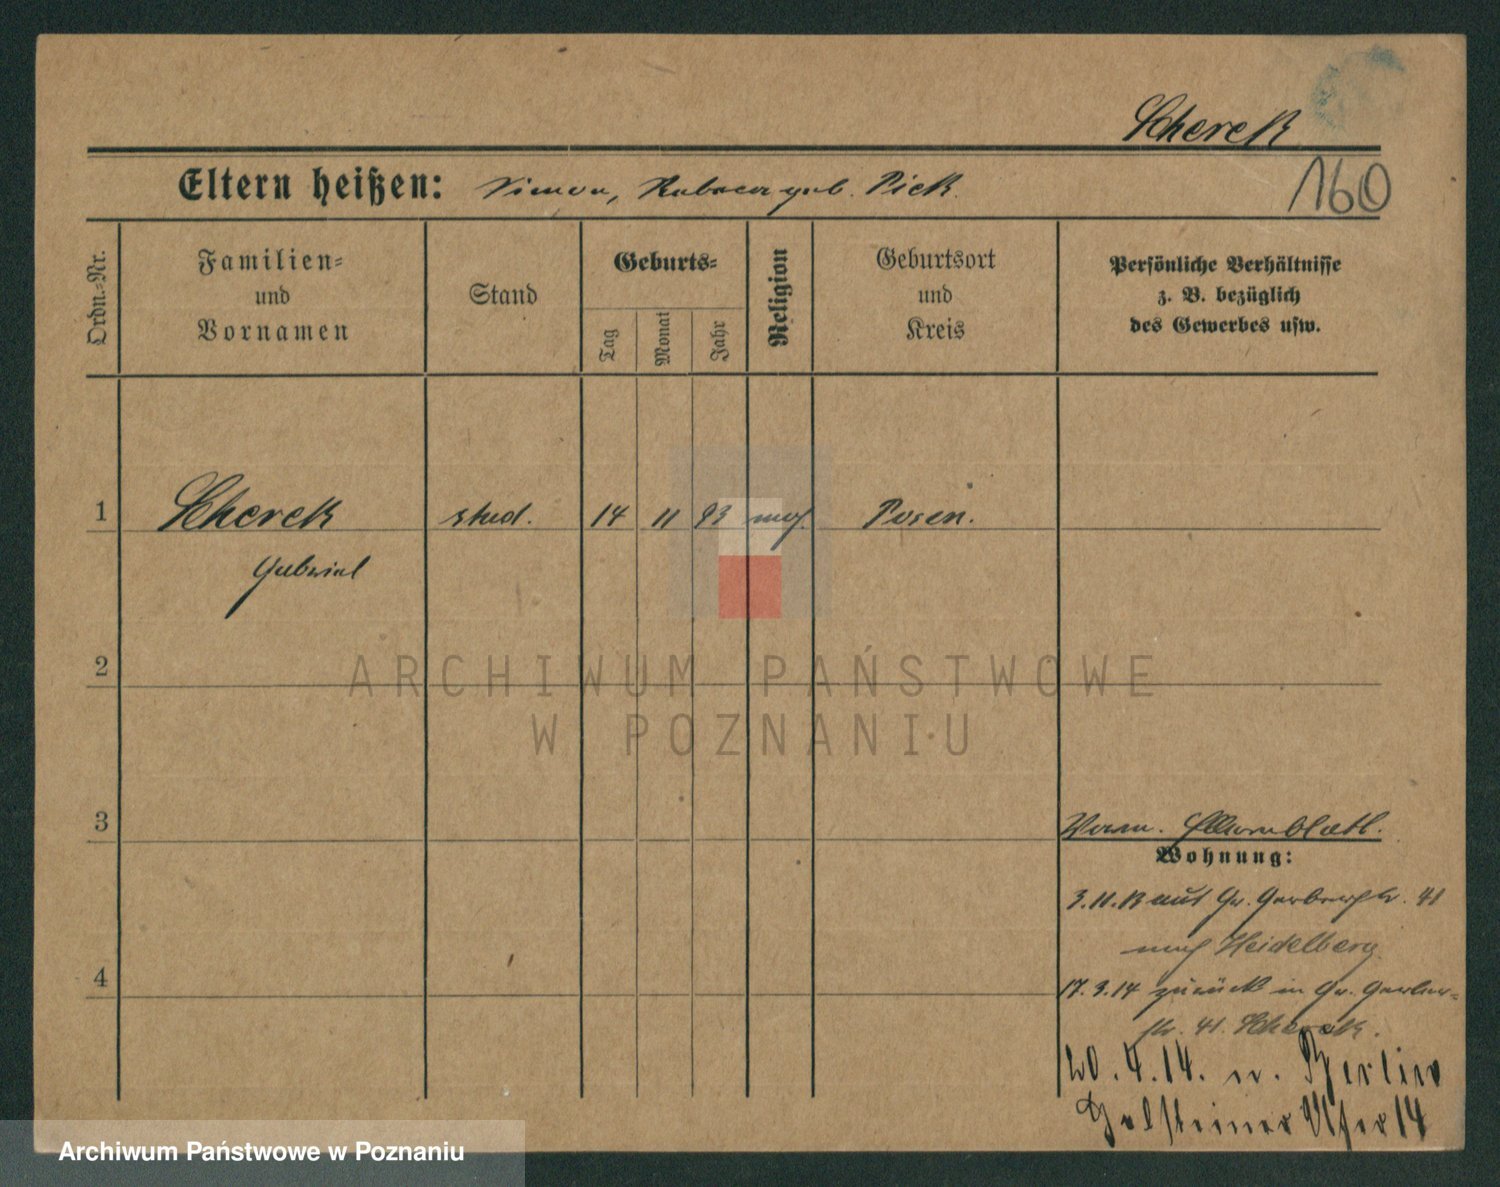 Scherek
Eltern heißen: Simon, Rebecca geb. Pick.
160
Ordn.-Nr.
Familien-
und
Vornamen
Stand
Geburts-
Tag
Monat
Jahr
Religion
Geburtsort
und
Kreis
Persönliche Verhältnisse
z. B. bezüglich
des Gewerbes usw.
1
Scherek
stud.
14
11
93
mos.
Posen.
Gabriel
2
ARCHIWUM PAŃSTWOWE
W POZNANIU
3
Verm. Elternblatt.
Wohnung:
3.11.13 aus Gr. Gerberstr. 41
nach Heidelberg.
4
17.3.14 zurück in Gr. Gerber-
str. 41. Scherek.
20.4.14. n. Berlin
Holsteiner Ufer 14
Archiwum Państwowe w Poznaniu